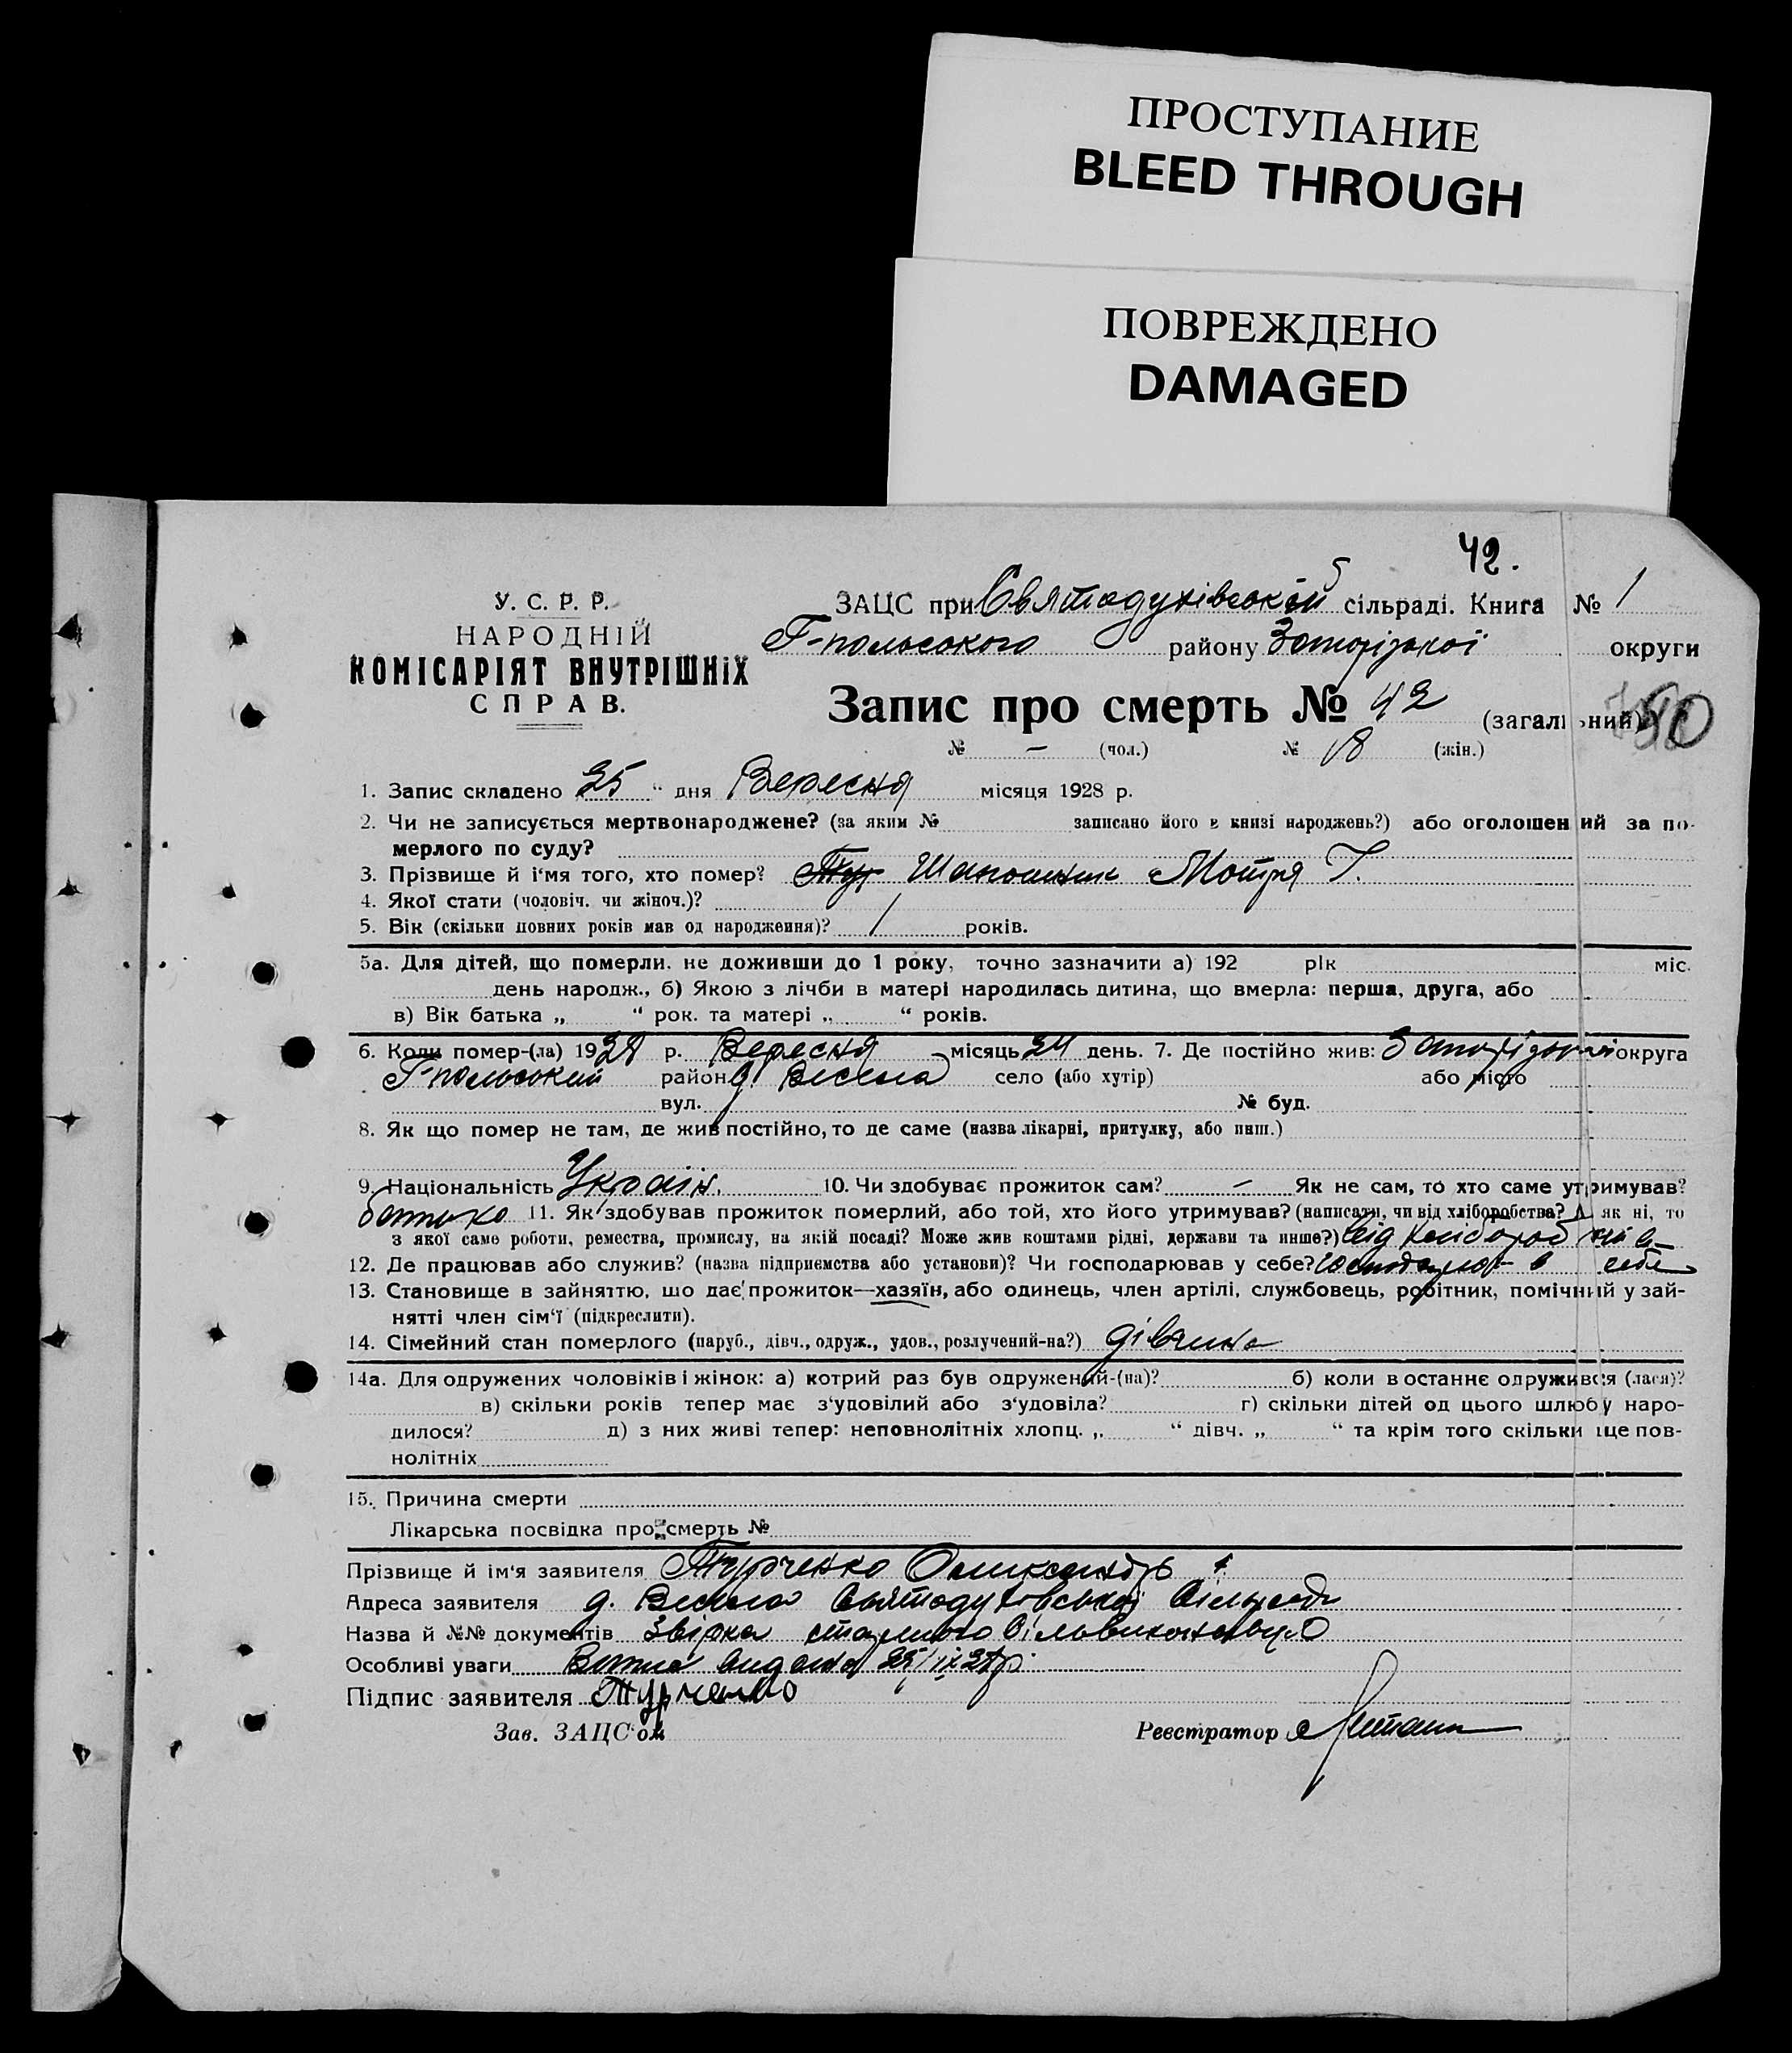 ПРОСТУПАНИЕ
BLEED THROUGH
ПОВРЕЖДЕНО
DAMAGED
42.
У. С. Р. Р.
НАРОДНІЙ
КОМІСАРІЯТ ВНУТРІШНІХ
СПРАВ.
ЗАЦС при Святодухівській сільраді. Книга № 1
Г-польського району Запорізької округи
Запис про смерть № 42 (загальний)
№ — (чол.) № 18 (жін.)
1. Запис складено 25 " дня Вересня місяця 1928 р.
2. Чи не записується мертвонароджене? (за яким № записано його в книзі народжень?) або оголошений за по-
мерлого по суду?
3. Прізвище й і'мя того, хто помер? Тур Шапошник Мотря Г.
4. Якої стати (чоловіч. чи жіноч.)?
5. Вік (скільки повних років мав од народження)? 1 років.
5а. Для дітей, що померли. не доживши до 1 року, точно зазначити а) 192 рік міс.
день народж., б) Якою з лічби в матері народилась дитина, що вмерла: перша, друга, або
в) Вік батька „ “ рок. та матері „ “ років.
6. Коли помер-(ла) 1928 р. Вересня місяць 24 день. 7. Де постійно жив: Запорізької округа
Г-польський район д. Весела село (або хутір) або місто
вул. № буд.
8. Як що помер не там, де жив постійно, то де саме (назва лікарні, притулку, або инш.)
9. Національність Україн. 10. Чи здобуває прожиток сам? — Як не сам, то хто саме утримував?
батько 11. Як здобував прожиток померлий, або той, хто його утримував? (написати, чи від хліборобства? А як ні, то
з якої саме роботи, ремества, промислу, на якій посаді? Може жив коштами рідні, держави та инше?) від хлібороб
12. Де працював або служив? (назва підприємства або установи)? Чи господарював у себе? господарював в себе
13. Становище в зайняттю, що дає прожиток—хазяїн, або одинець, член артілі, службовець, робітник, помічний у зай-
нятті член сім'ї (підкреслити).
14. Сімейний стан померлого (паруб., дівч., одруж., удов., розлучений-на?) дівчина
14а. Для одружених чоловіків і жінок: а) котрий раз був одружений-(на)? б) коли в останнє одружився (лася)?
в) скільки років тепер має з'удовілий або з'удовіла? г) скільки дітей од цього шлюбу наро-
дилося? д) з них живі тепер: неповнолітніх хлопц. „ “ дівч. „ “ та крім того скільки ще пов-
нолітніх
15. Причина смерти
Лікарська посвідка про смерть №
Прізвище й ім'я заявителя Турченко Олександр
Адреса заявителя д. Весела Святодуховської Сільради
Назва й №№ документів Звірка
Особливі уваги Витяг видана 25/IX 28 р.
Підпис заявителя Турченко
Зав. ЗАЦС'ом Реєстратор